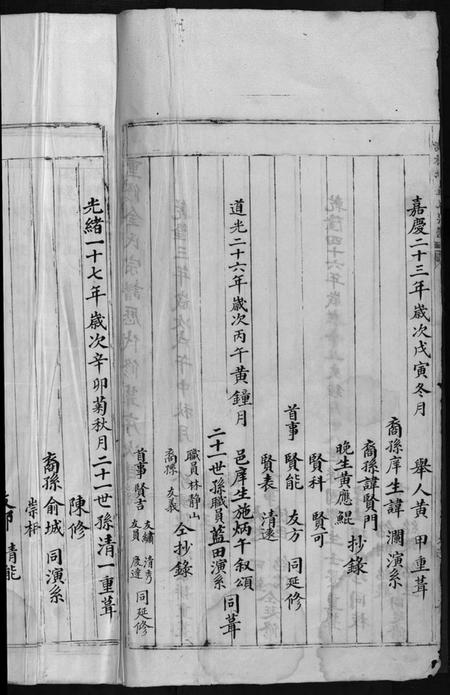 嘉慶二十三年歲次戊寅冬月
舉人黃甲重葺
裔孫庠生諱瀾演系
裔孫諱賢門
晚生黃應鯤
抄錄
賢科 賢可
首事 賢能 友方 同延修
賢表 清遠
道光二十六年歲次丙午黃鐘月
邑庠生施炳午叙頌
二十一世孫職員藍田演系
同葺
職員林靜山
裔孫 友義
仝抄錄
友繡 清秀
首事 賢言
同延修
友員 度達
光緒一十七年歲次辛卯菊秋月二十一世孫清一重葺
陳修
裔孫俞城 同演系
崇析
清能